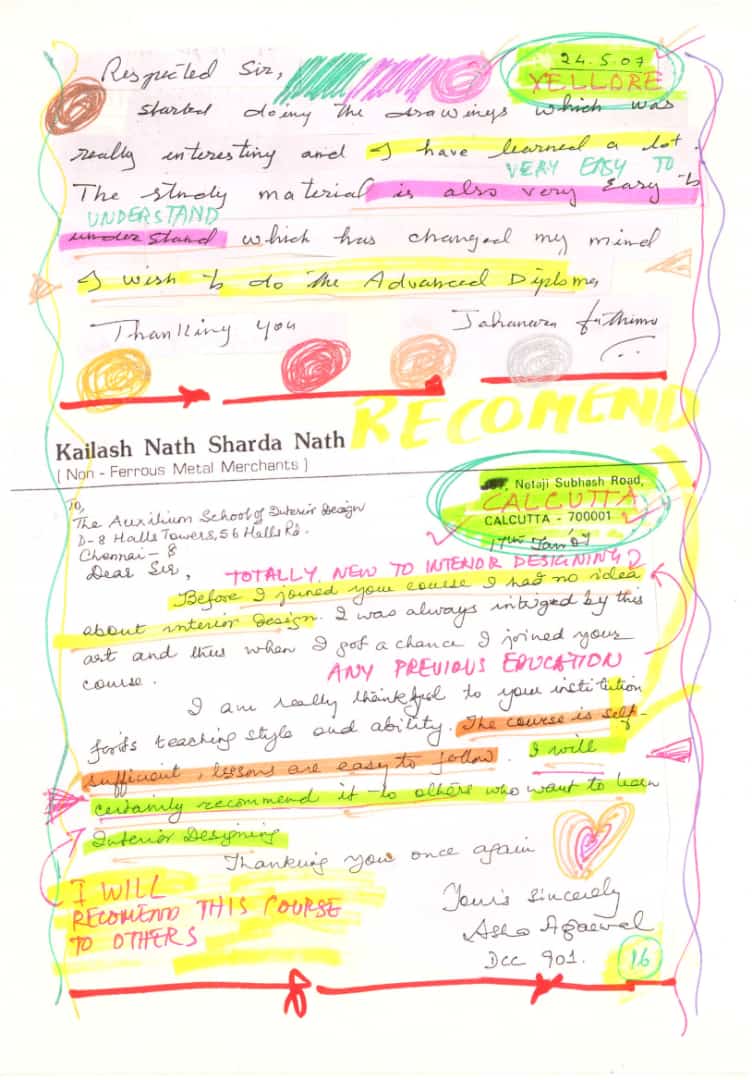 Respected Sir,
24.5.07
VELLORE
started doing the drawings which was
really interesting and I have learned a lot.
VERY EASY TO
The study material is also very easy to
UNDERSTAND
understand which has changed my mind
I wish to do the Advanced Diploma
Thanking you
Jahanara fathima
RECOMEND
Kailash Nath Sharda Nath
( Non - Ferrous Metal Merchants )
Netaji Subhash Road,
CALCUTTA
CALCUTTA - 700001
17th Jan' 07
To,
The Auxilium School of Interior Design
D-8 Halls Towers, 56 Halls Rd.
Chennai - 8
Dear Sir,
TOTALLY NEW TO INTENIOR DESIGNING
Before I joined your course I had no idea
about interior design. I was always intriged by this
art and thus when I got a chance I joined your
course.
ANY PREVIOUS EDUCATION
I am really thankful to your institution
for its teaching style and ability. The course is self-
sufficient, lessons are easy to follow. I will
certainly recommend it to others who want to learn
Interior Designing
Thanking you once again
I WILL
RECOMEND THIS COURSE
TO OTHERS
Yours sincerely
Asha Agarwal
DCC 901.
16